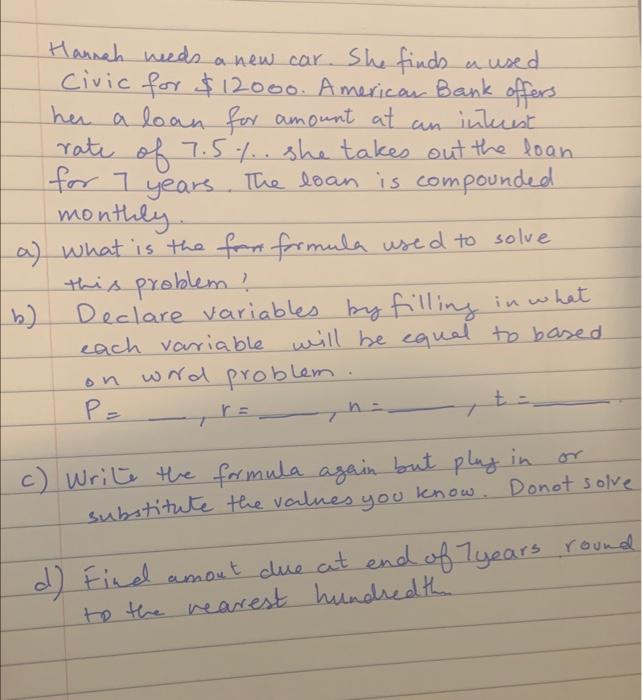 Hannah needs a new car. She finds a used
Civic for $12000. American Bank offers
her a loan for amount at an interest
rate of 7.5%.. she takes out the loan
for 7 years. The loan is compounded
monthly.
a) What is the formula used to solve
this problem?
b) Declare variables by filling in what
each variable will be equal to based
on word problem.
P = ___, r = ___, n = ___, t = ___
c) Write the formula again but plug in or
substitute the values you know. Donot solve
d) Find amout due at end of 7years round
to the nearest hundredth